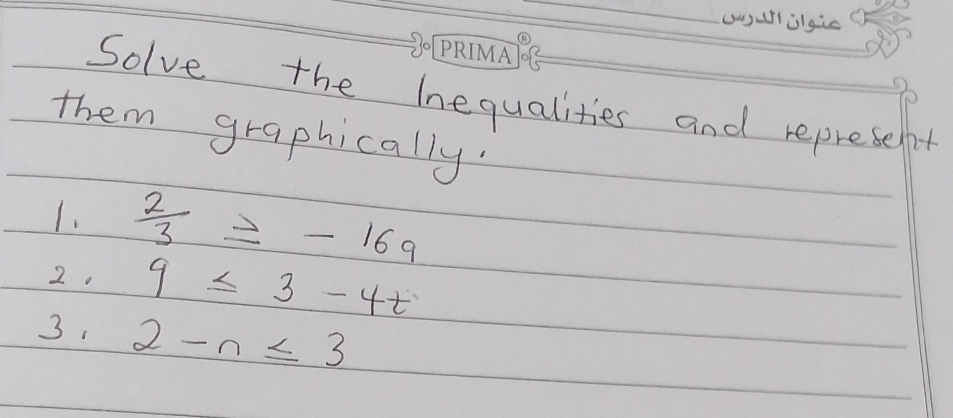 عنوان الدرس
PRIMA®
Solve the Inequalities and represent
them graphically.
1. 2/3 ≥ - 16q
2. 9 ≤ 3 - 4t
3. 2 - n ≤ 3